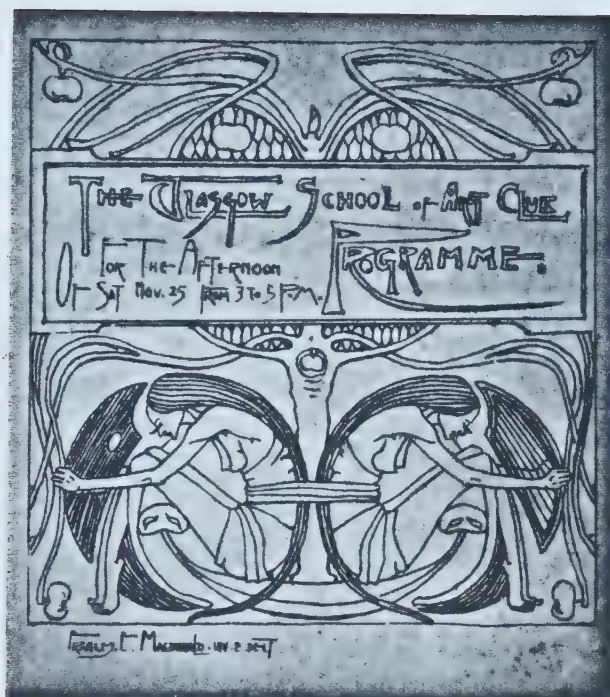 THE GLASGOW SCHOOL OF ART CLUB
PROGRAMME.
FOR THE AFTERNOON
OF SAT NOV. 25 FROM 3 TO 5 P.M.
FRANCES E. MACDONALD. INV. & DELT